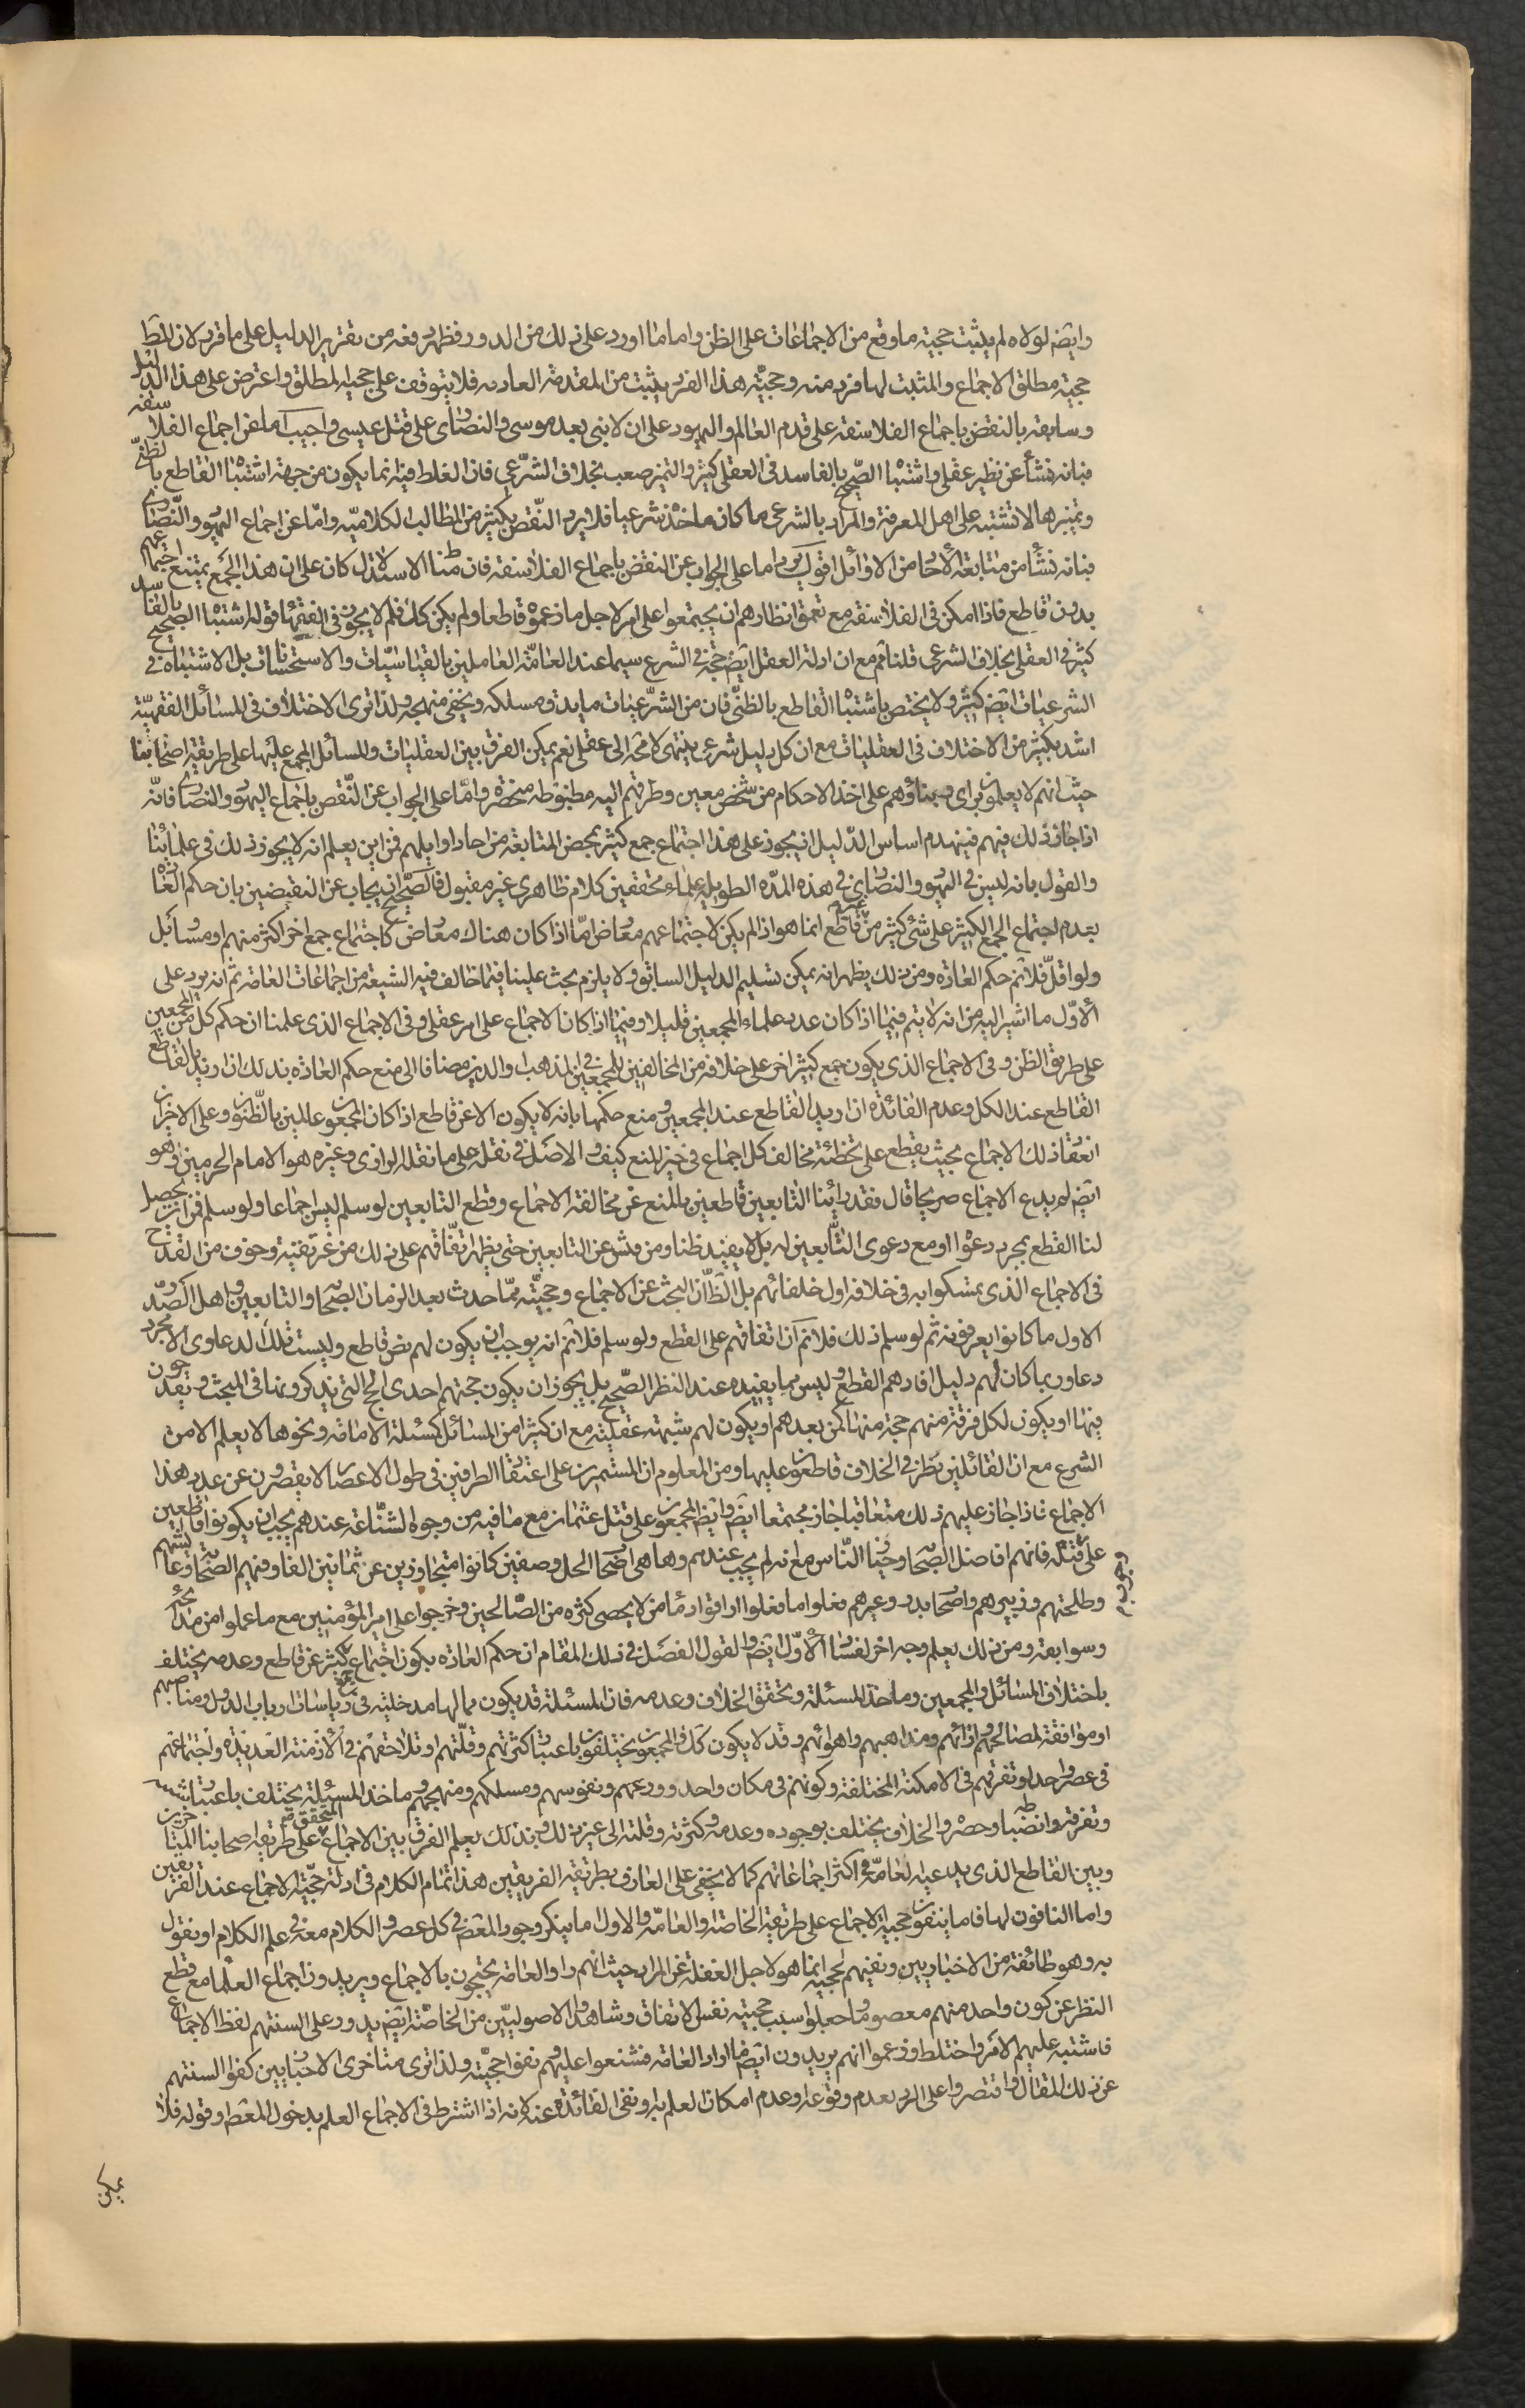 وايضا لولاه لم يثبت حجية ما وقع من الاجماعات على الظن واما ما اورد على ذلك من الدور فظهر دفعه من تقرير الدليل على ما قرر لان المط
حجية مطلق الاجماع والمثبت لها فرد منه وحجية هذا الفرد يثبت من المقدمة العادية فلا يتوقف على حجية المطلق واعترض على هذا الدليل
وسابقه بالنقض باجماع الفلاسفة على قدم العالم واليهود على ان لا نبي بعد موسى والنصارى على قتل عيسى واجيب اما عن اجماع الفلاسفة
فبانه نشأ عن نظر عقلي واشتباه الصحيح بالفاسد في العقلي كثير والتميز صعب بخلاف الشرعي فان الغلط فيه انما يكون من جهة اشتباه القاطع بالظني
وتميزها لا تشتبه على اهل المعرفة والمراد بالشرعي ما كان ماخذه شرعيا فلا يرد النقض بكثير من المطالب الكلامية واما عن اجماع اليهود والنصارى
فبانه نشأ من متابعة الآحاد من الاوائل اقول يرد اما على الجواب عن النقض باجماع الفلاسفة فان بناء الاستدلال كان على ان هذا الجمع يمتنع اجتماعهم
بدون قاطع فاذا امكن في الفلاسفة مع تعمق انظارهم ان يجتمعوا على امر لاجل ما زعموه قاطعا ولم يكن كك فلم لا يجوز في الفقهاء قوله اشتباه الصحيح بالفاسد
كثير في العقلي بخلاف الشرعي قلنا ثم مع ان ادلة العقل ايضا حجة في الشرع سيما عند العامة العاملين بالقياسيات والاستحسانات بل الاشتباه في
الشرعيات ايضا كثير ولا يختص باشتباه القاطع بالظني فان من الشرعيات ما يدق مسلكه ويخفى منهجه ولذا ترى الاختلاف في المسائل الفقهية
اشد بكثير من الاختلاف في العقليات مع ان كل دليل شرعي ينتهي لا محة الى عقلي نعم يمكن الفرق بين العقليات والمسائل المجمع عليها على طريقة اصحابنا
حيث انهم لا يعملون براي وبناؤهم على اخذ الاحكام من شخص معين وطرقهم اليه مضبوطة منحصرة واما على الجواب عن النقض باجماع اليهود والنصارى فانه
اذا جاز ذلك فيهم فينهدم اساس الدليل اذ يجوز على هذا اجتماع جمع كثير بمحض المتابعة من احاد اوايلهم فمن اين يعلم انه لا يجوز ذلك في علمائنا
والقول بانه ليس في اليهود والنصارى في هذه المدة الطويلة علماء محققين كلام ظاهري غير مقبول فالصحيح ان يجاب عن النقيضين بان حكم العادة
بعدم اجتماع الجمع الكثير على شيء كثير من غير قاطع انما هو اذا لم يكن لاجتماعهم معارض اما اذا كان هناك معارض كاجتماع جمع اخر اكثر منهم او مساوئل
ولو اقل فلا ثم حكم العادة ومن ذلك يظهر انه يمكن تسليم الدليل السابق ولا يلزم بحث علينا فيما خالف فيه الشيعة من اجماعات العامة ثم انه يرد على
الاول ما اشير اليه من انه لا يتم فيما اذا كان عدد علماء المجمعين قليلا وفيما اذا كان الاجماع على امر عقلي وفي الاجماع الذي علمنا ان حكم كل من المجمعين
على طريق الظن وفي الاجماع الذي يكون جمع كثير اخر على خلافه من المخالفين للمجمعين في المذهب والدين مضافا الى منع حكم العادة بذلك ان اريد بالقاطع
القاطع عند الكل وعدم الفائدة ان اريد القاطع عند المجمعين ومنع حكمها بانه لا يكون الا عن قاطع اذا كان المجمعون عالمين بالظنون وعلى الاخيران
انعقاد ذلك الاجماع بحيث يقطع على تخطئة مخالف كل اجماع في حيز المنع كيف والاصل في نقله على ما نقله الراوي وغيره هو الامام الحرمين وهو
ايضا لم يدع الاجماع صريحا قال فقد راينا التابعين قاطعين بالمنع عن مخالفة الاجماع وقطع التابعين لو سلم ليس اجماعا ولو سلم فمن اين يحصل
لنا القطع بمجرد دعوا او مع دعوى التابعين له بل لا يفيد ظنا ومن فتش عن التابعين حتى يظهر اتفاقهم على ذلك من غير تقية وخوف من القدح
في الاجماع الذي تمسكوا به في خلافة اول خلفائهم بل الظ ان البحث عن الاجماع وحجيته مما حدث بعد الزمان الصحابة والتابعين واهل الصدر
الاول ما كانوا يعرفونه ثم لو سلم ذلك فلا ثم ان اتفاقهم على القطع ولو سلم فلا ثم انه يوجب ان يكون لهم نص قاطع وليست تلك الدعاوى الا مجرد
دعاو ربما كان لهم دليل افادهم القطع وليس مما يفيده عند النظر الصحيح بل يجوز ان يكون حجتهم احدى الحجج التي يذكرونها في المبحث ويقدحون
فيها او يكون لكل فرقة منهم حجة منها كمن بعدهم او يكون لهم شبهة عقلية مع ان كثيرا من المسائل كمسئلة الامامة ونحوها لا يعلم الا من
الشرع مع ان القائلين بطرفي الخلاف قاطعون عليها ومن المعلوم ان المستمرين على اعتقاد الطرفين في طول الاعصار لا يقصرون عن عدد هذا
الاجماع فاذا جاز عليهم ذلك متعاقبا جاز مجتمعا ايضا وايضا المجمعون على قتل عثمان مع ما فيه من وجوه الشناعة عندهم يجب ان يكونوا قاطعين
على قتله فانهم افاضل الصحابة وخيار الناس مع انه لم يجب عندهم وها هي اصحاب الجمل وصفين كانوا متجاوزين عن ثمانين الفا وفيهم الصحابة وعائشتهم
وطلحتهم وزبيرهم واصحاب بدر وغيرهم فعلوا ما فعلوا اراقوا دماء من لا يحصى كثره من الصالحين وخرجوا على امير المؤمنين مع ما علموا من مدائحه
وسوابقه ومن ذلك يعلم وجه اخر لفساد الاول ايضا والقول الفصل في ذلك المقام ان حكم العادة بكون اجتماع جمع كثير عن قاطع وعدمه يختلف
باختلاف المسائل والمجمعين وماخذ المسئلة وتحقق الخلاف وعدمه فان المسئلة قد يكون مما لها مدخلية في رياسات ارباب الدول ومناصبهم
او موافقة لمصالحهم وارائهم ومذاهبهم واهوائهم وقد لا يكون كك والمجمعون يختلفون باعتبار كثرتهم وقلتهم وتلاحقهم في الازمنة العديدة واجتماعهم
في عصر واحد او تفرقهم في الامكنة المختلفة وكونهم في مكان واحد وورعهم ونفوسهم ومسلكهم ومنهجهم وماخذ المسئلة يختلف باعتبار
وتفرقه وانضباطه وحصره والخلاف يختلف بوجوده وعدمه وكثرته وقلته الى غير ذلك وبذلك يعلم الفرق بين الاجماع المتحقق على طريقة اصحابنا المتاخرين
وبين القاطع الذي يدعيه العامة في اكثر اجماعاتهم كما لا يخفى على العارف بطريقة الفريقين هذا تمام الكلام في ادلة حجية الاجماع عند الفريقين
واما النافون لها فاما ينفون حجية الاجماع على طريقة الخاصة او العامة والاول اما ينكر وجود المعصوم في كل عصر والكلام معه في علم الكلام او يقول
به وهو طائفة من الاخباريين ونفيهم لحجيته انما هو لاجل الغفلة عن المراد حيث انهم راوا العامة يحتجون بالاجماع ويريدون اجماع العلماء مع قطع
النظر عن كون واحد منهم معصوم وما جعلوا سبب حجيته نفس الاتفاق وشاهدوا الاصوليين من الخاصة ايضا يدور على السنتهم لفظ الاجماع
فاشتبه عليهم الامر واختلط وزعموا انهم يريدون ايضا ما اراد العامة فشنعوا عليهم ونفوا حجيته ولذا ترى متاخري الاخباريين كفوا السنتهم
عن ذلك المقال واقتصروا على الرد لعدم وقوعه او عدم امكان العلم به ونفي الفائدة عنه لانه اذا اشترط في الاجماع العلم بدخول المعصوم او قوله فلا
يمكن